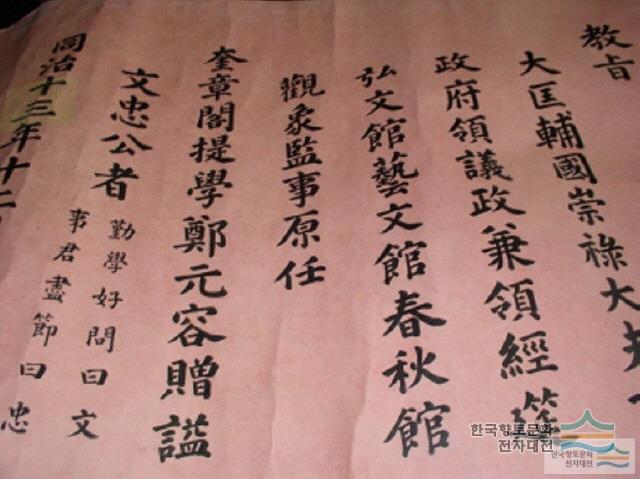 教旨
大匡輔國崇祿大
政府領議政兼領經筵
弘文館藝文館春秋館
觀象監事原任
奎章閣提學鄭元容贈諡
文忠公者
勤學好問曰文
事君盡節曰忠
同治十三年十二
한국향토문화
전자대전
한국향토문화
전자대전